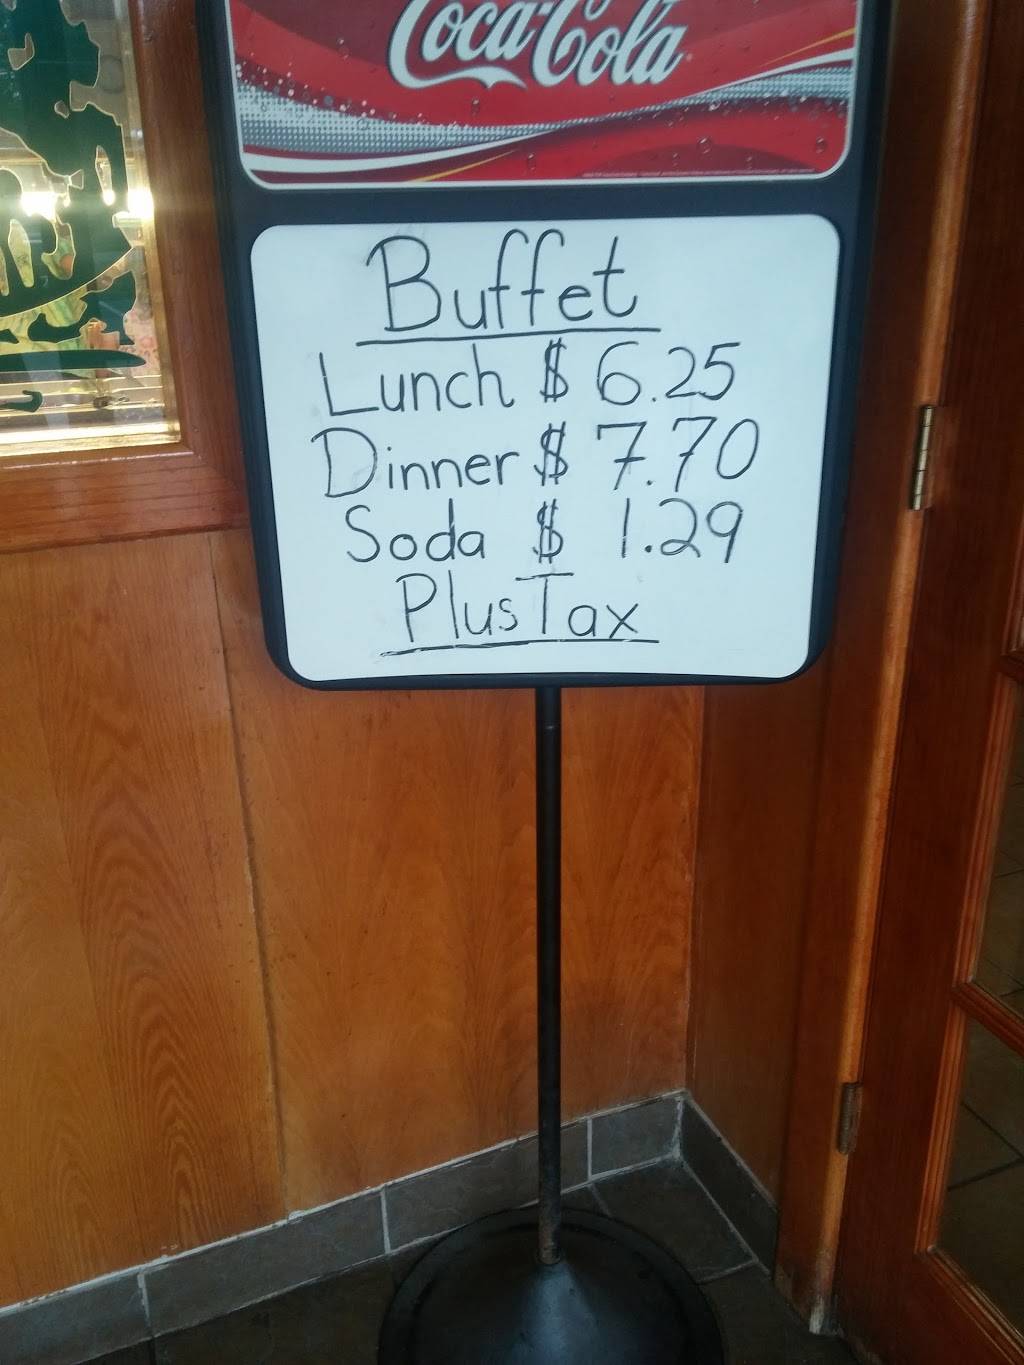 Coca-Cola
Buffet
Lunch $ 6.25
Dinner $ 7.70
Soda $ 1.29
Plus Tax